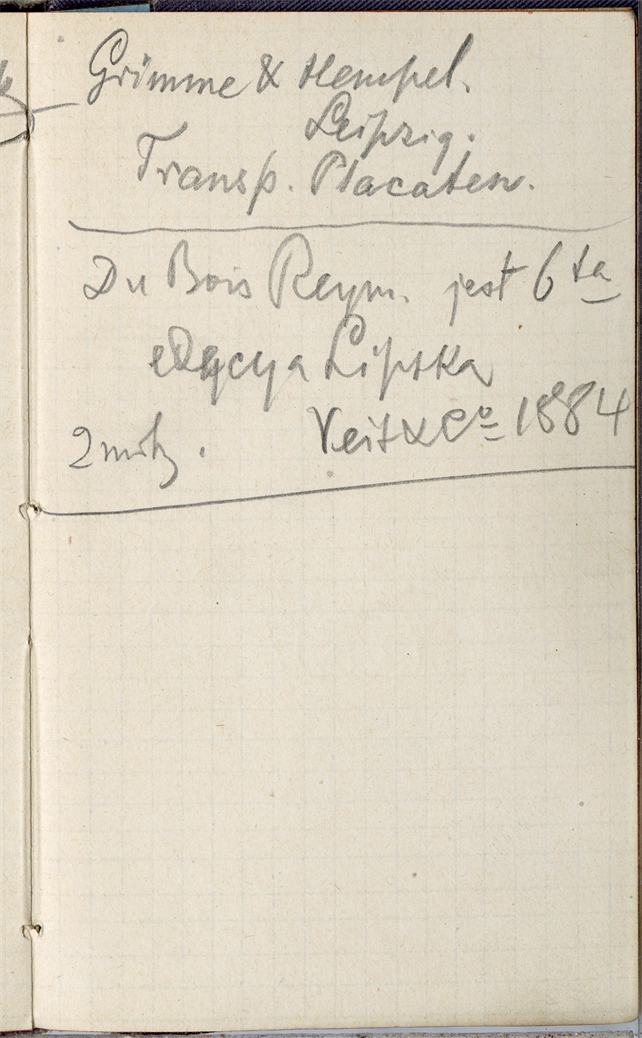 Grimme & Hempel.
Leipzig.
Transp. Placaten.
Du Bois Reym. jest 6 ta
edycya Lipska
Veit & Co 1884